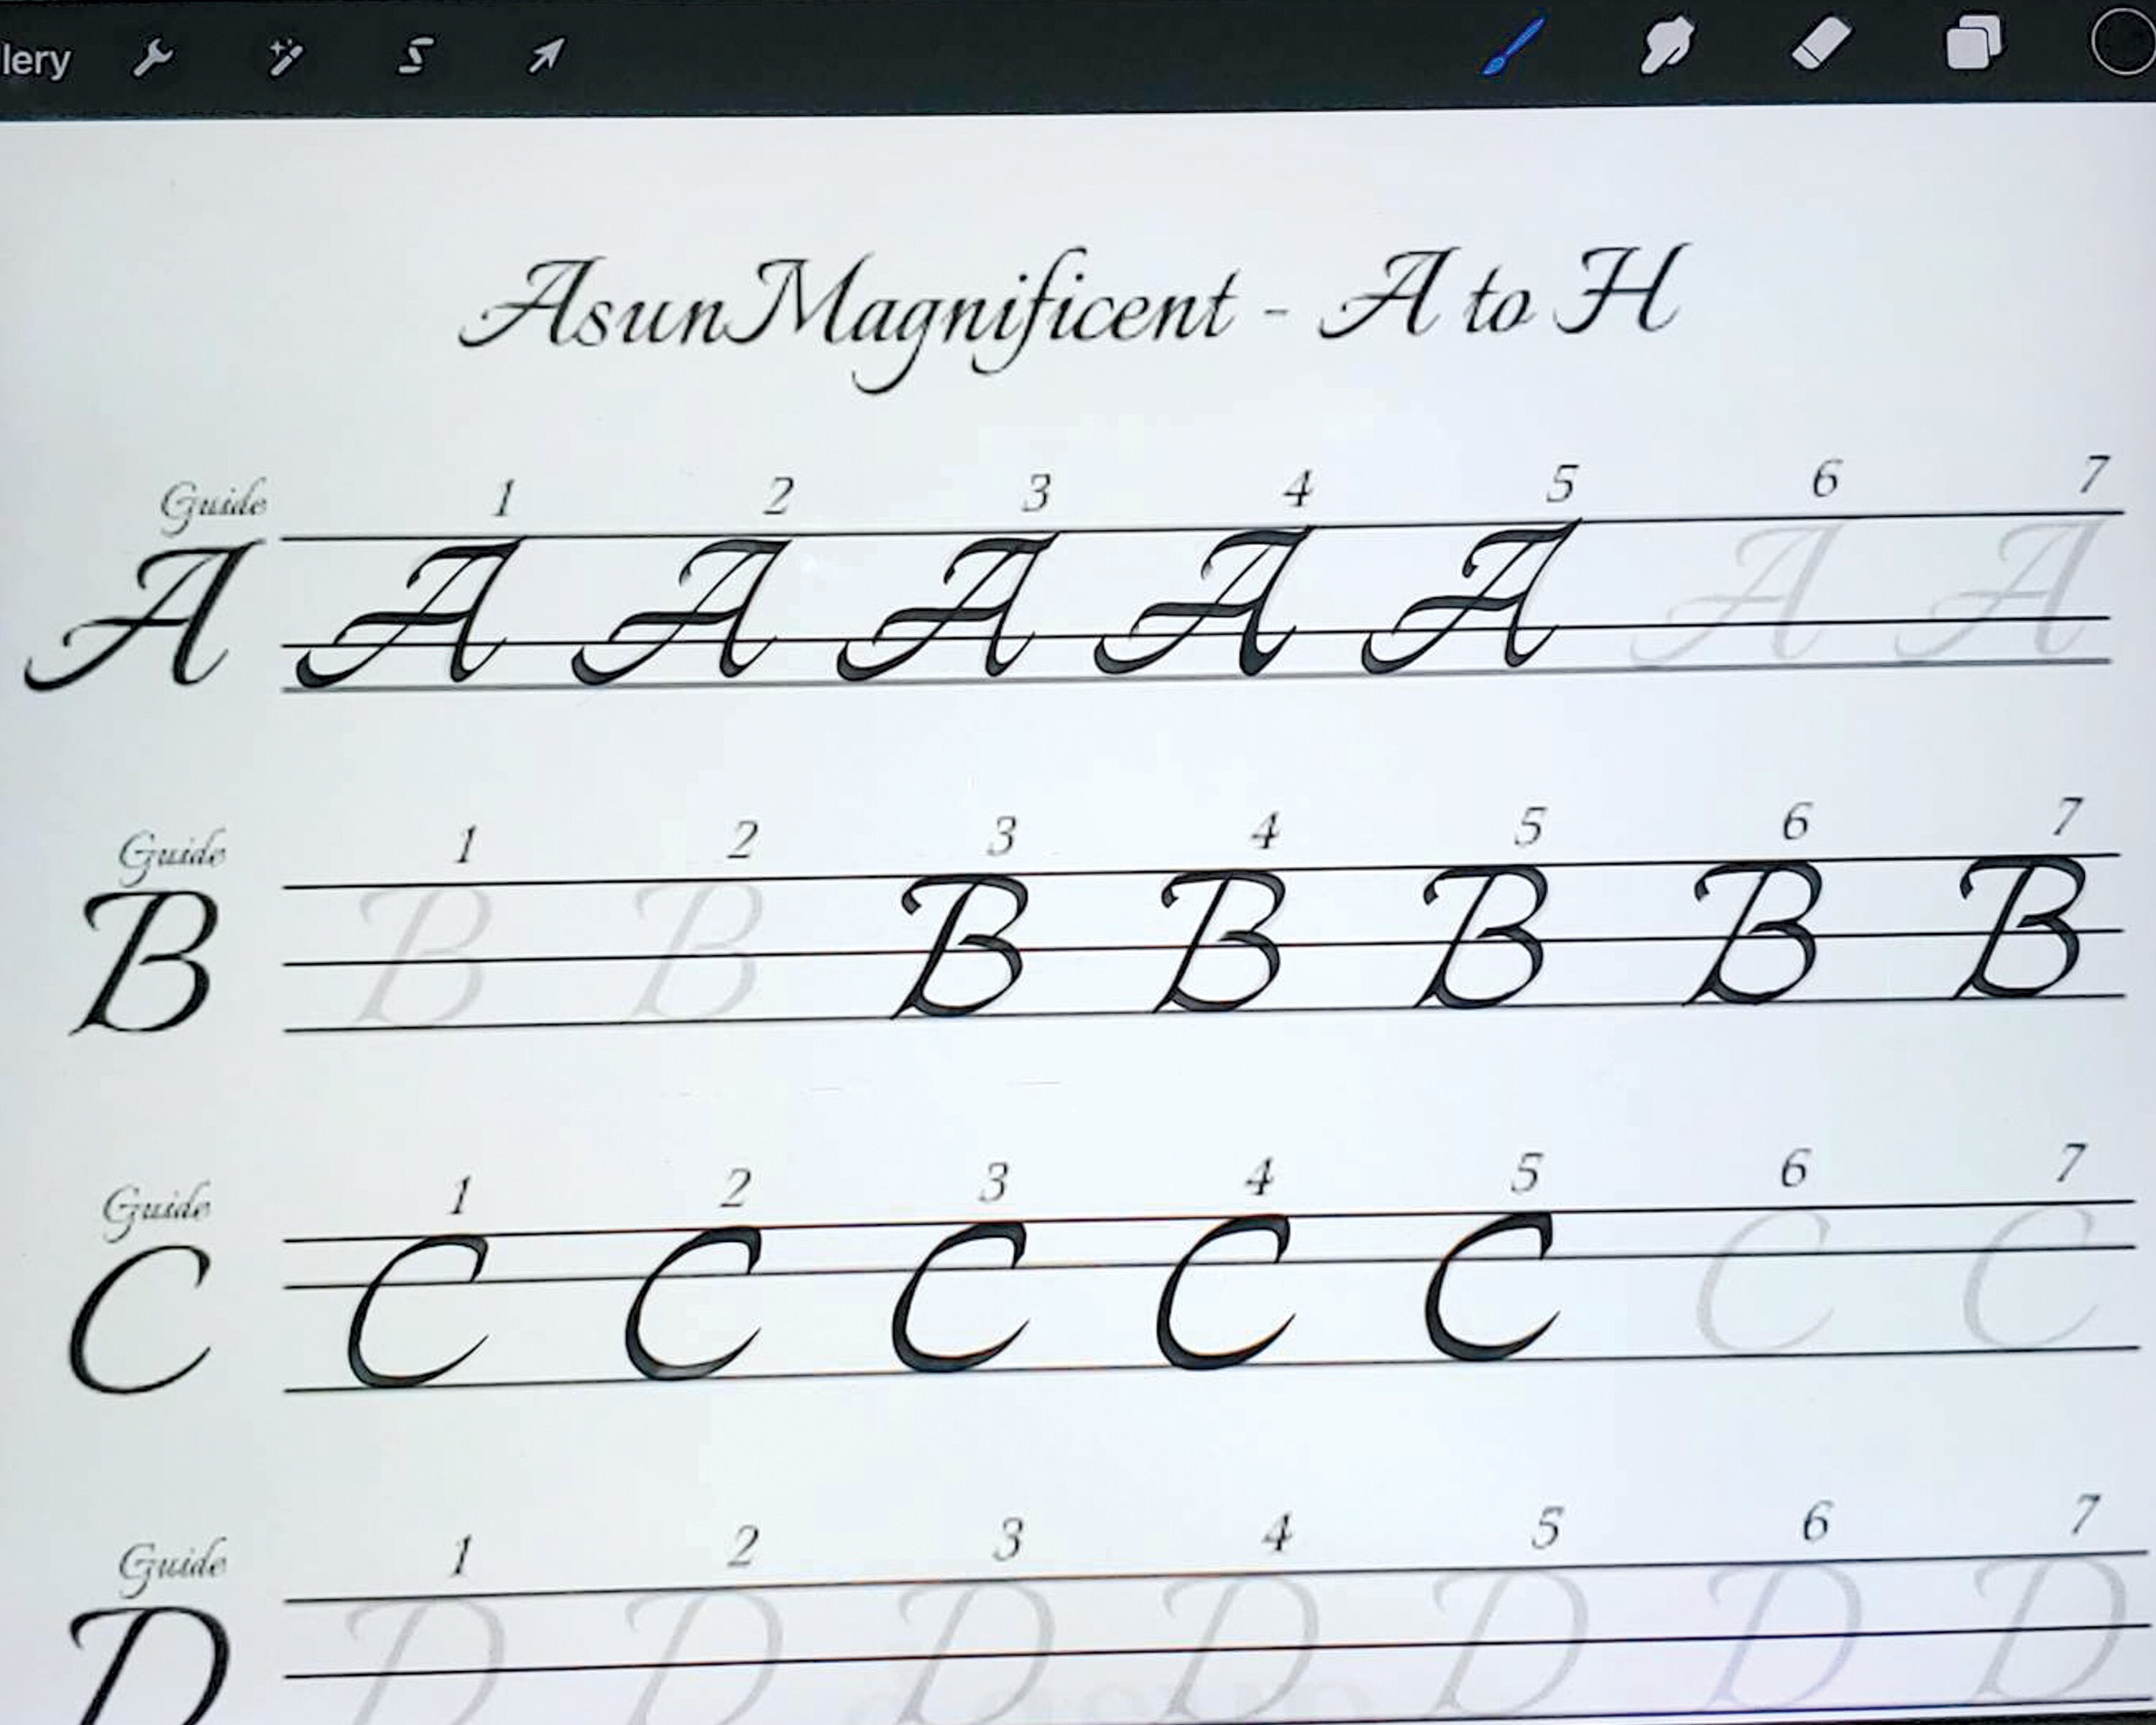 lery
AsunMagnificent - A to H
Guide 1 2 3 4 5 6 7
A A A A A A A A
Guide 1 2 3 4 5 6 7
B B B B B B B B
Guide 1 2 3 4 5 6 7
C C C C C C C C
Guide 1 2 3 4 5 6 7
D D D D D D D D